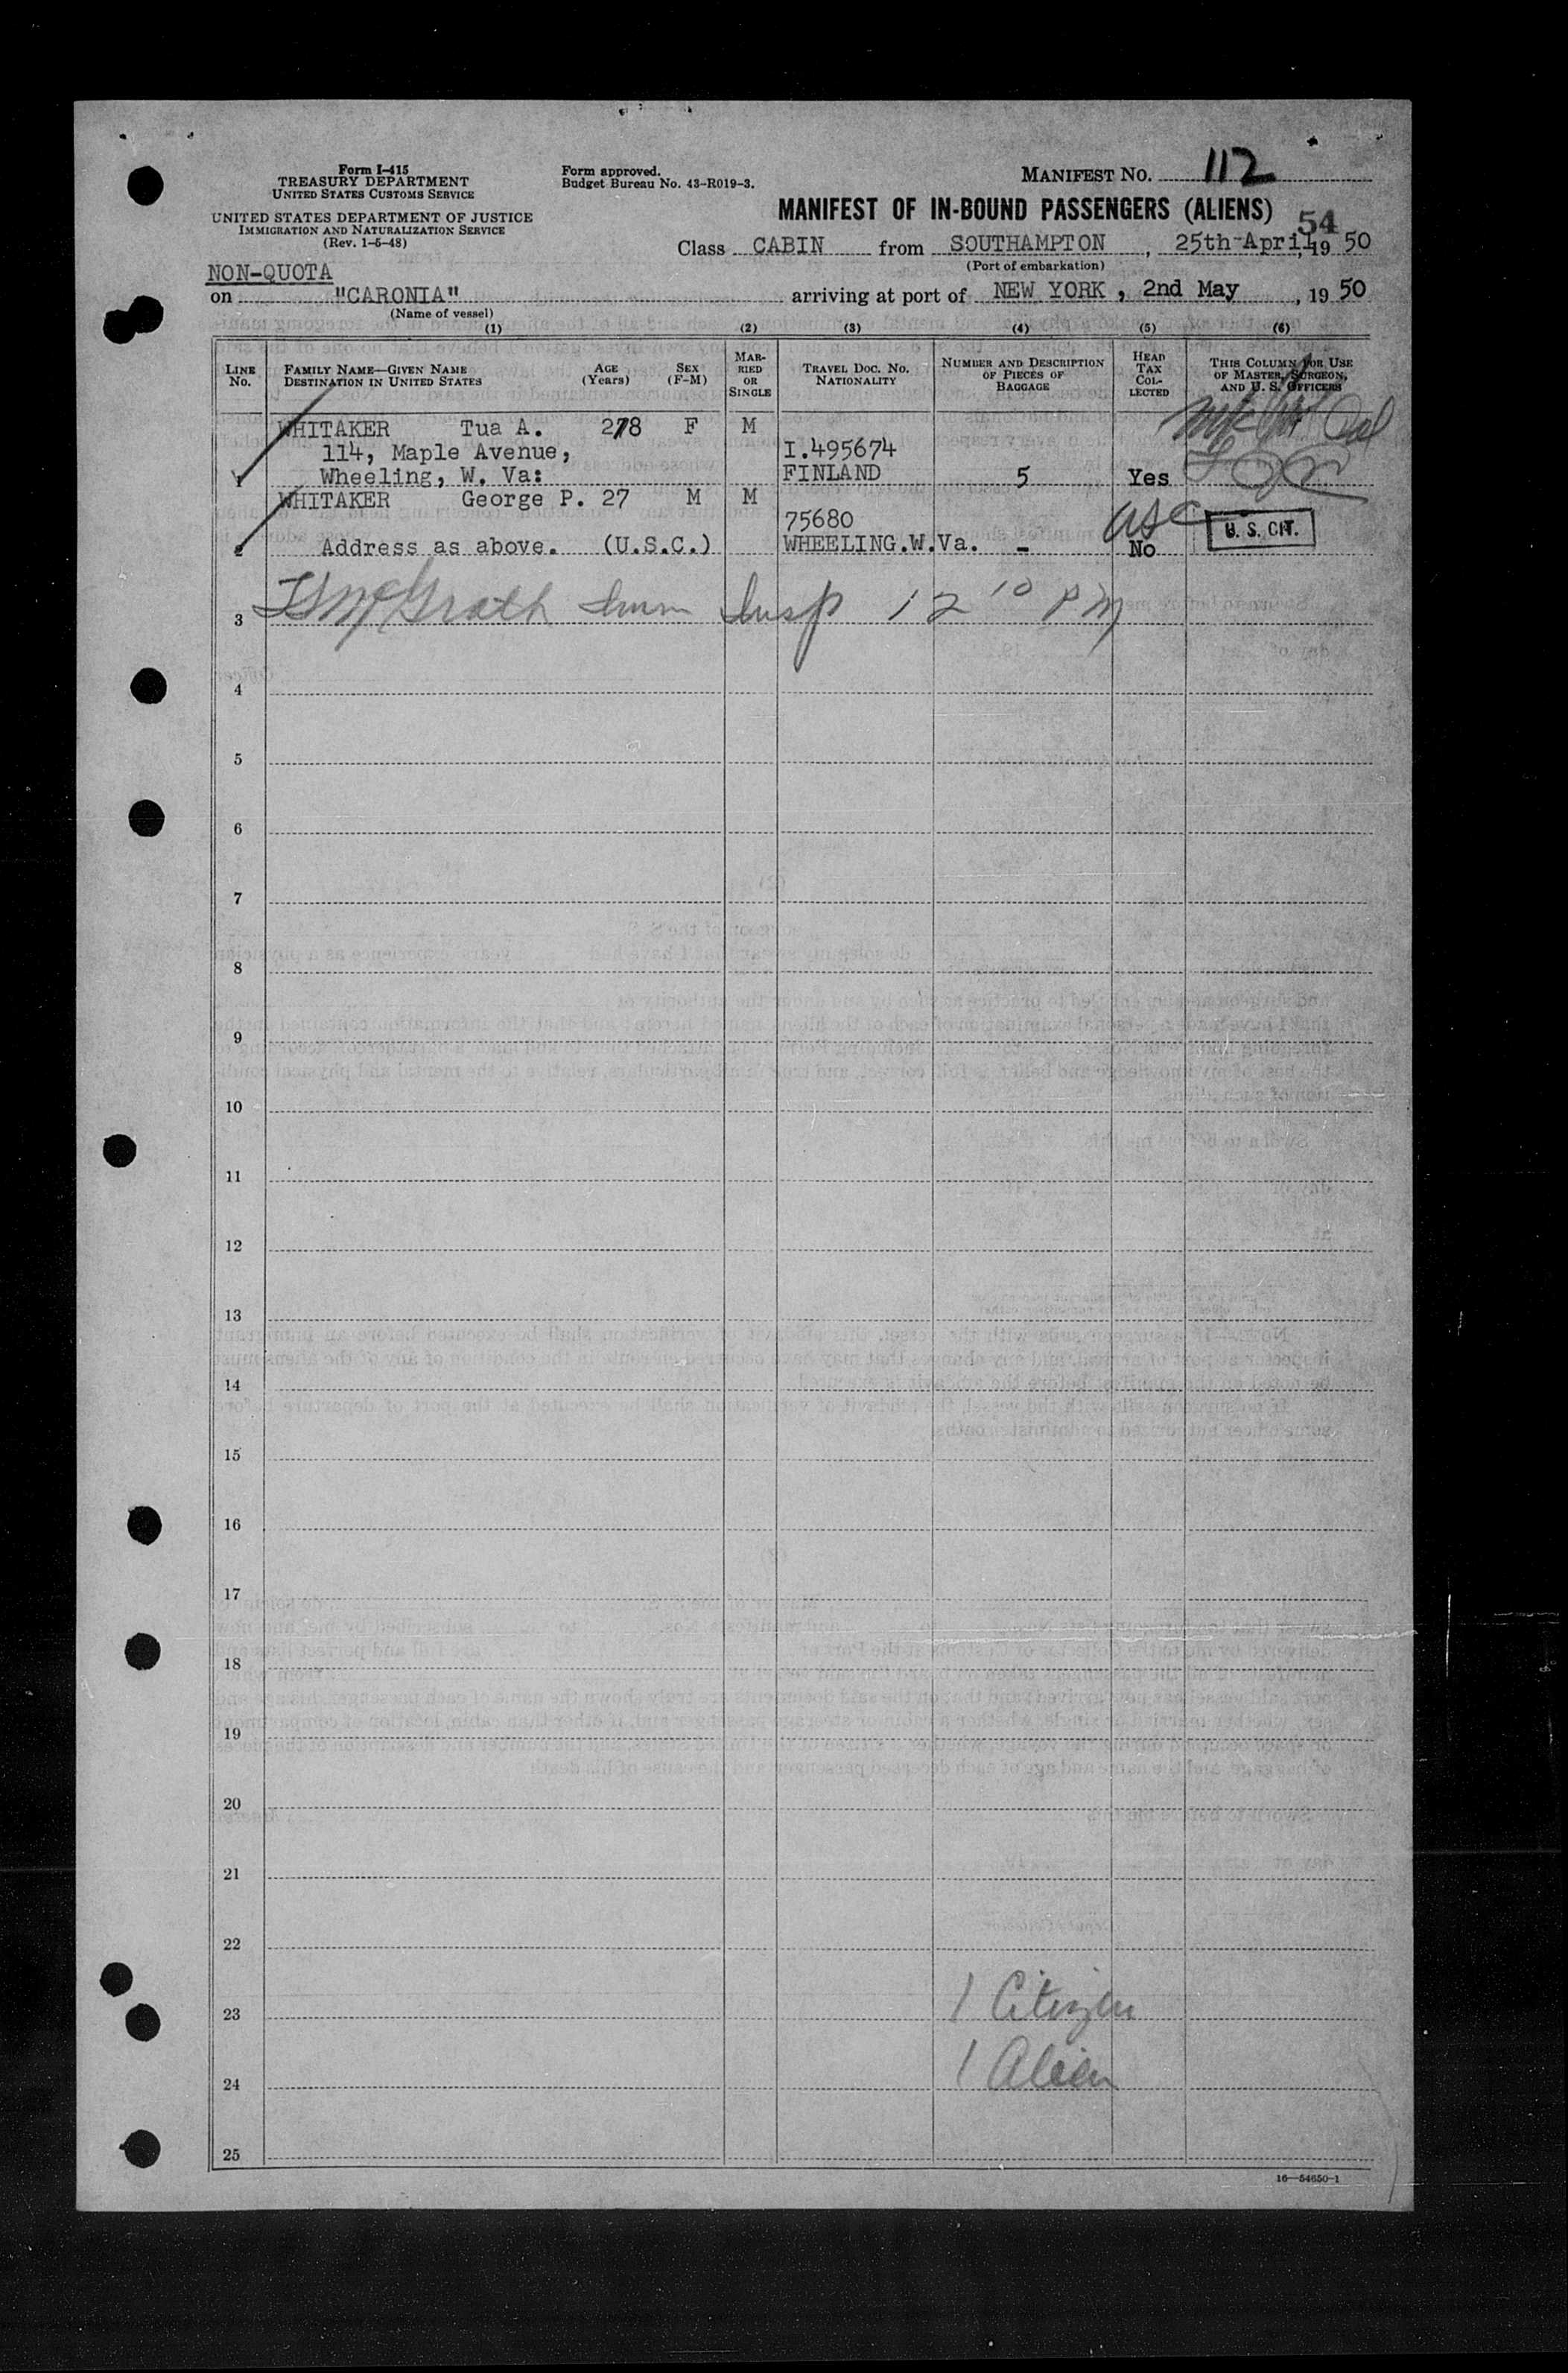 Form I-415
TREASURY DEPARTMENT
UNITED STATES CUSTOMS SERVICE
UNITED STATES DEPARTMENT OF JUSTICE
IMMIGRATION AND NATURALIZATION SERVICE
(Rev. 1-5-48)
Form approved.
Budget Bureau No. 43-R019-3.
MANIFEST NO. 112
MANIFEST OF IN-BOUND PASSENGERS (ALIENS)
54
Class CABIN from SOUTHAMPTON, 25th April, 19 50
(Port of embarkation)
NON-QUOTA
on "CARONIA" arriving at port of NEW YORK, 2nd May, 19 50
(Name of vessel)
(1) (2) (3) (4) (5) (6)
LINE No. FAMILY NAME—GIVEN NAME DESTINATION IN UNITED STATES AGE (Years) SEX (F-M) MARRIED OR SINGLE TRAVEL DOC. NO. NATIONALITY NUMBER AND DESCRIPTION OF PIECES OF BAGGAGE HEAD TAX COLLECTED THIS COLUMN FOR USE OF MASTER, SURGEON, AND U. S. OFFICERS
WHITAKER Tua A. 278 F M
114, Maple Avenue, I.495674
1 Wheeling, W. Va: FINLAND 5 Yes
WHITAKER George P. 27 M M
75680 USC U. S. CIT.
2 Address as above. (U.S.C.) WHEELING.W.Va. - No
3 McGrath Imm Insp 12 10 PM
4
5
6
7
8
9
10
11
12
13
14
15
16
17
18
19
20
21
22
23 1 Citizen
24 1 Alien
25
16—54650-1